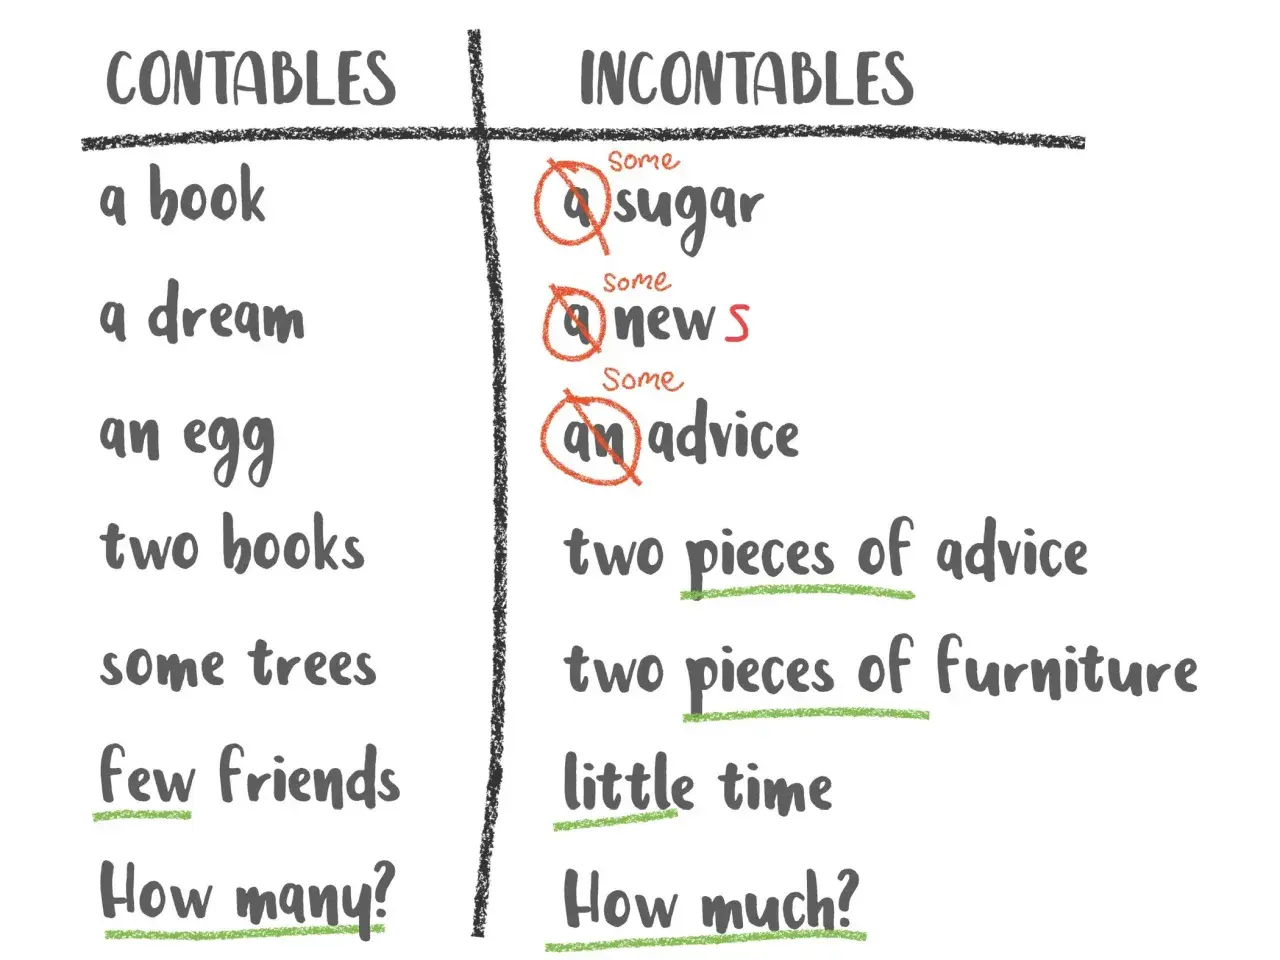 CONTABLES
a book
a dream
an egg
two books
some trees
few friends
How many?
INCONTABLES
some
a sugar
some
a news
some
an advice
two pieces of advice
two pieces of furniture
little time
How much?